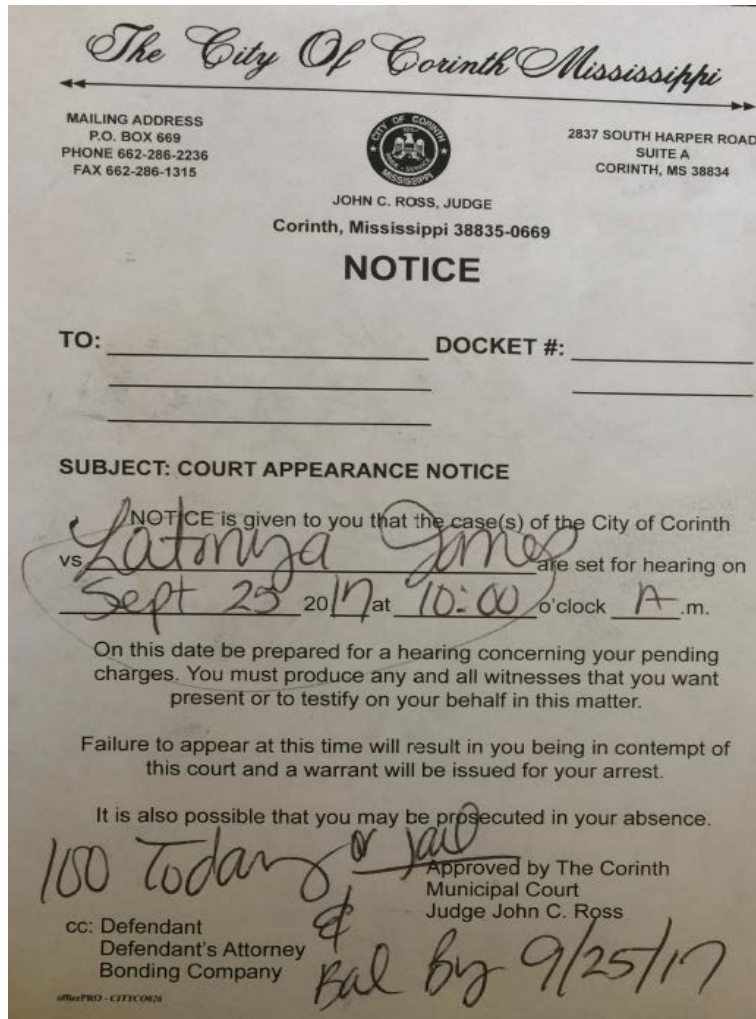 The City Of Corinth Mississippi
MAILING ADDRESS
P.O. BOX 669
PHONE 662-286-2236
FAX 662-286-1315
CITY OF CORINTH
MISSISSIPPI
2837 SOUTH HARPER ROAD
SUITE A
CORINTH, MS 38834
JOHN C. ROSS, JUDGE
Corinth, Mississippi 38835-0669
NOTICE
TO:
DOCKET #:
SUBJECT: COURT APPEARANCE NOTICE
NOTICE is given to you that the case(s) of the City of Corinth
vs Latonya James are set for hearing on
Sept 25 2017 at 10:00 o'clock A.m.
On this date be prepared for a hearing concerning your pending
charges. You must produce any and all witnesses that you want
present or to testify on your behalf in this matter.
Failure to appear at this time will result in you being in contempt of
this court and a warrant will be issued for your arrest.
It is also possible that you may be prosecuted in your absence.
100 Today or jail
&
Bal By 9/25/17
Approved by The Corinth
Municipal Court
Judge John C. Ross
cc: Defendant
Defendant's Attorney
Bonding Company
officePRO - CITYCO026